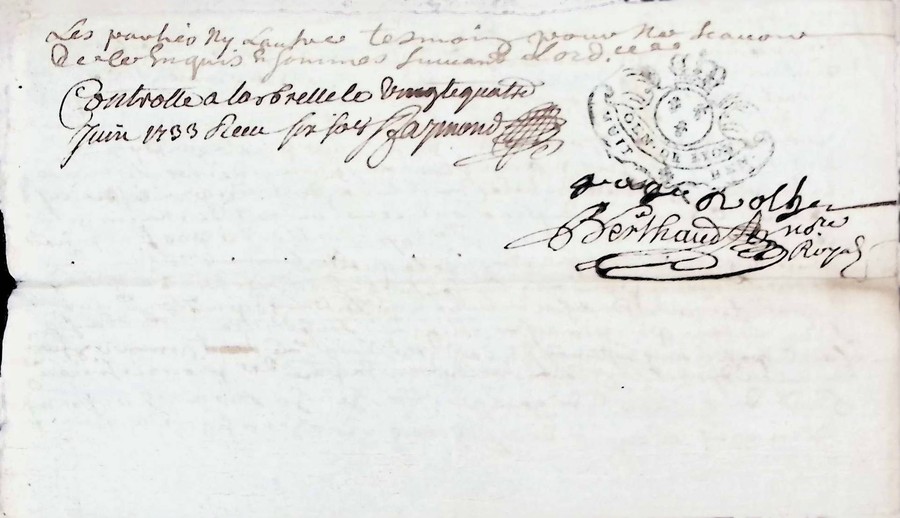 Les parties Ny Lautre tesmoin pour Ne scavoir
De ce Enquis & sommes suivant l'ord.ce
Controlle a Larbrelle le vingtequatre
Juin 1733 Receu six sols Raymond
GEN. DE LYON
Rolhe
Berthaud nore
Royal